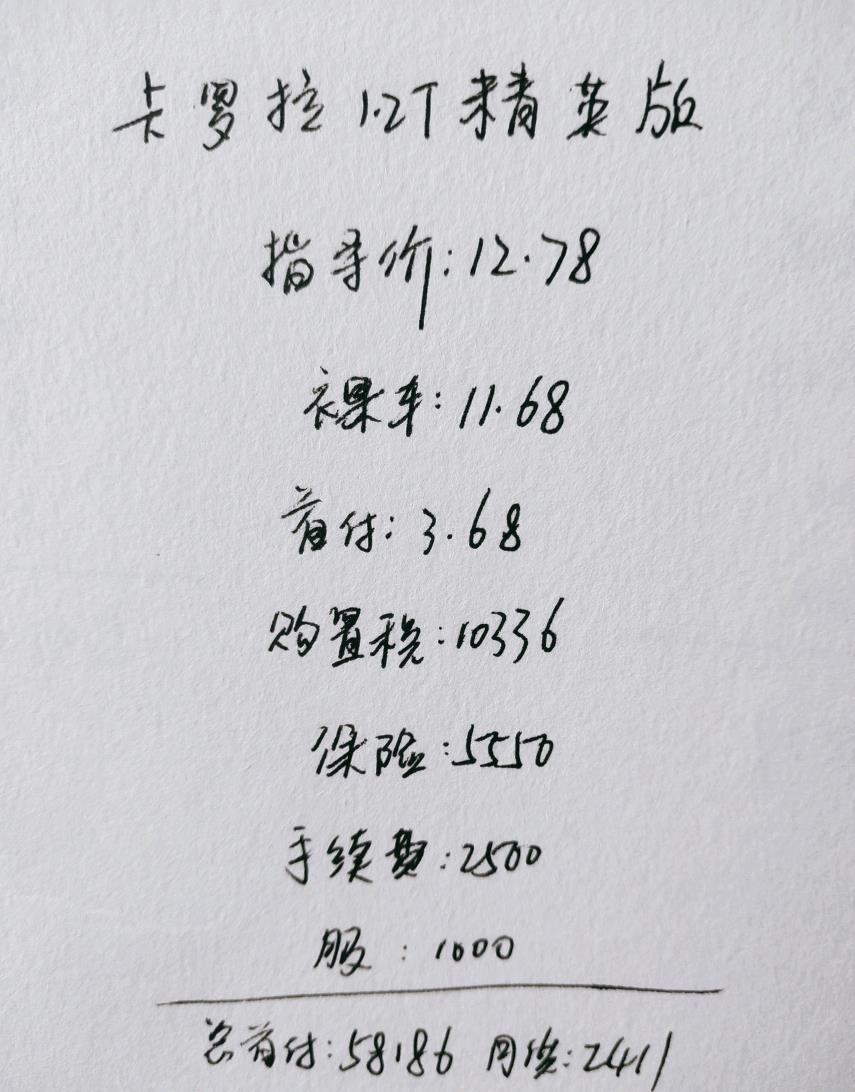 卡罗拉 1.2T 精英版
指导价:12.78
裸车:11.68
首付:3.68
购置税:10336
保险:5550
手续费:2500
服:1000
总首付:58186 月供:2411